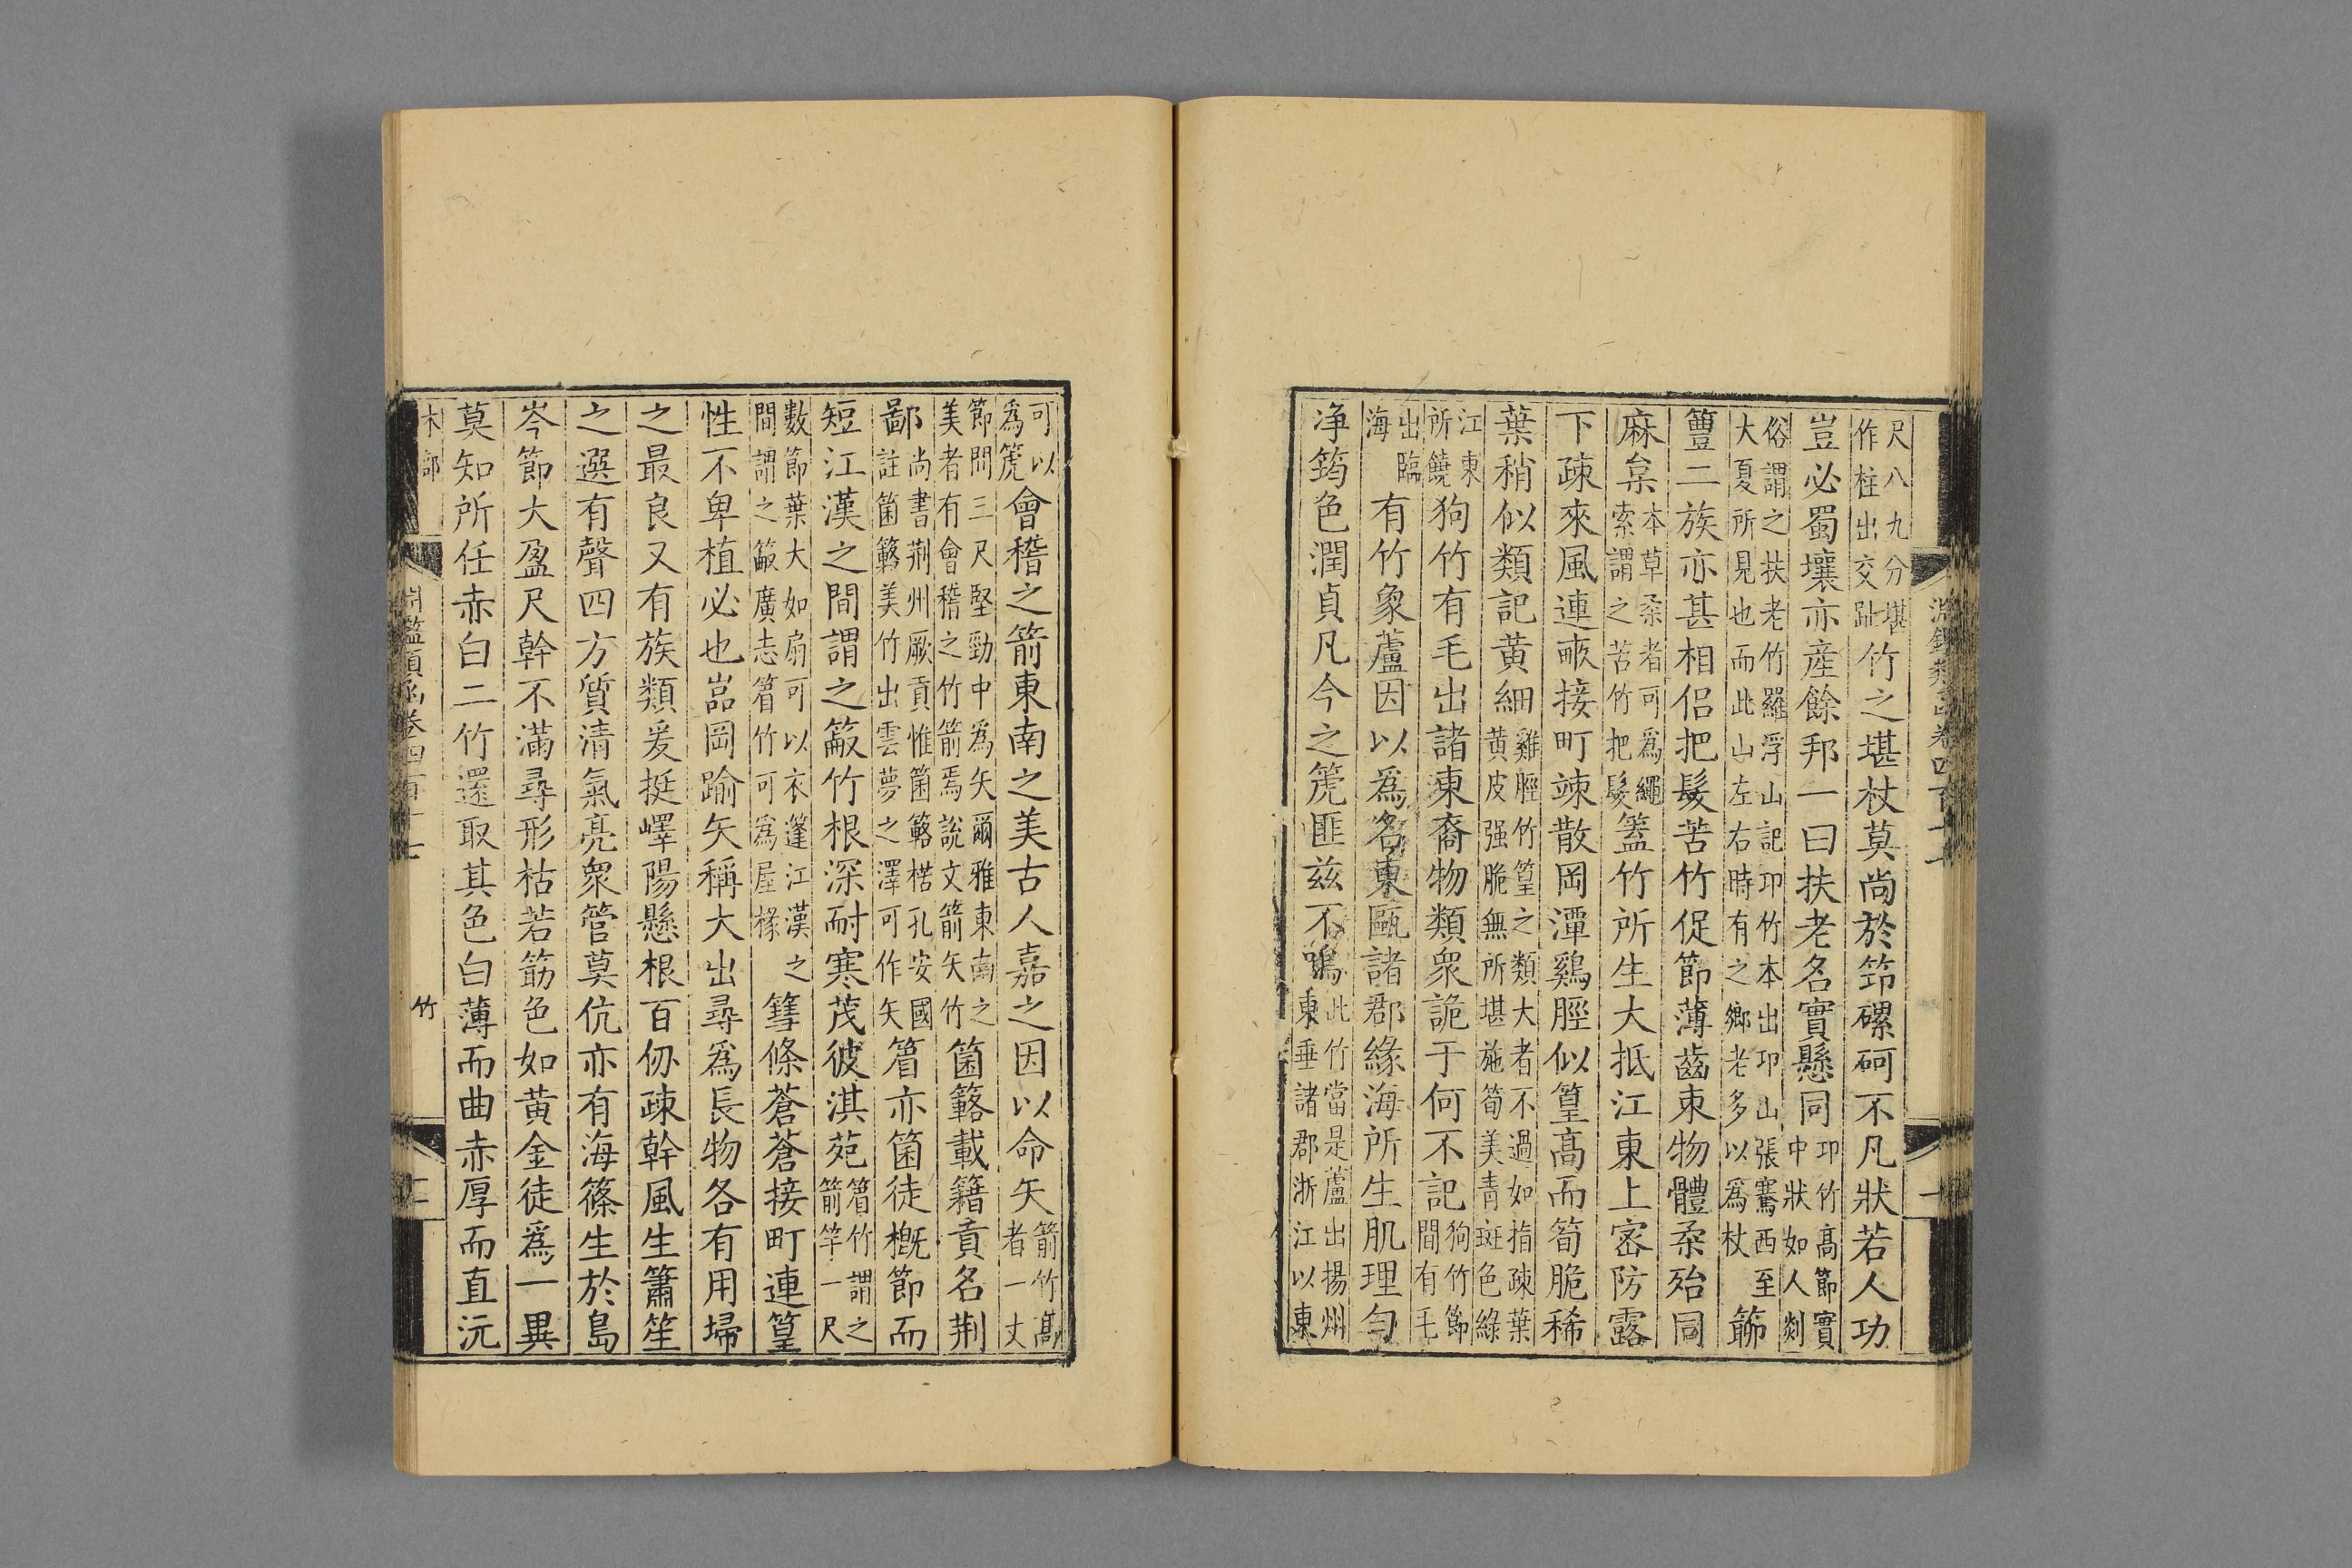 尺八九分堪作柱出交趾竹之堪杖莫尚於筇磥砢不凡狀若人功
豈必蜀壤亦産餘邦一曰扶老名實懸同卭竹高節實中狀如人剡
俗謂之扶老竹羅浮山記卭竹本出卭山張騫西至大夏所見也而此山左右時有之鄉老多以爲杖筋
簹二族亦甚相侣把髮苦竹促節薄齒束物體柔殆同
麻枲本草柔者可爲繩索謂之苦竹把髮蓋竹所生大抵江東上宻防露
下疎來風連畝接町竦散岡潭鷄脛似篁高而筍脆稀
葉稍似類記黄細雞脛竹篁之類大者不過如指疎葉黄皮强脆無所堪施筍美青斑色綠
江東所饒狗竹有毛出諸東裔物類衆詭于何不記狗竹節間有毛
出臨海有竹象蘆因以爲名東甌諸郡緣海所生肌理匀
净筠色潤貞凡今之箎匪兹不鳴此竹當是蘆出揚州東垂諸郡浙江以東
可以爲箎會稽之箭東南之美古人嘉之因以命矢箭竹髙者一丈
節間三尺堅勁中爲矢爾雅東南之美者有會稽之竹箭焉說文箭矢竹箘簵載籍貢名荆
鄙尚書荆州厥貢惟箘簵楛孔安國註箘簵美竹出雲夢之澤可作矢䈞亦箘徒概節而
短江漢之間謂之䉛竹根深耐寒茂彼淇苑䈞竹謂之箭竿一尺
數節葉大如扇可以衣篷江漢之間謂之䉛廣志䈞竹可爲屋椽篲條蒼蒼接町連篁
性不卑植必也嵓岡踰矢稱大出尋爲長物各有用埽
之最良又有族類爰挺嶧陽懸根百仞疎幹風生簫笙
之選有聲四方質清氣亮衆管莫伉亦有海篠生於島
岑節大盈尺幹不滿尋形枯若筯色如黄金徒爲一異
莫知所任赤白二竹還取其色白薄而曲赤厚而直沅
木部
淵鑑類函卷四百十七
竹
二